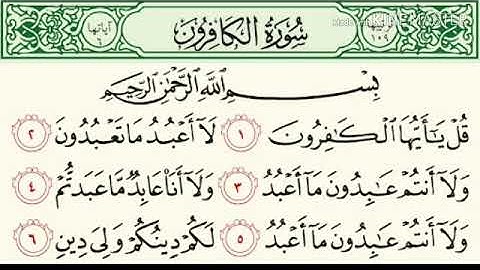 ترتيبها ١٠٩ سُورَةُ الكَافِرُونَ آياتها ٦
Made with KINEMASTER
بِسْمِ اللَّهِ الرَّحْمَٰنِ الرَّحِيمِ
قُلْ يَٰٓأَيُّهَا ٱلْكَٰفِرُونَ ١ لَآ أَعْبُدُ مَا تَعْبُدُونَ ٢
وَلَآ أَنتُمْ عَٰبِدُونَ مَآ أَعْبُدُ ٣ وَلَآ أَنَا۠ عَابِدٌ مَّا عَبَدتُّمْ ٤
وَلَآ أَنتُمْ عَٰبِدُونَ مَآ أَعْبُدُ ٥ لَكُمْ دِينُكُمْ وَلِىَ دِينِ ٦